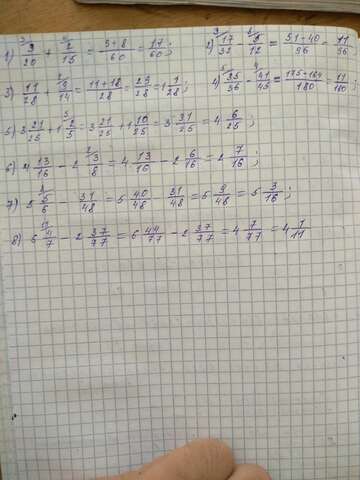 1) 3/20 + 2/15 = (9+8)/60 = 17/60; 2) 17/32 - 5/12 = (51-40)/96 = 11/96;
3) 11/28 + 9/14 = (11+18)/28 = 29/28 = 1 1/28; 4) 35/36 - 41/45 = (175-164)/180 = 11/180;
5) 3 21/25 + 1 2/5 = 3 21/25 + 1 10/25 = 3 31/25 = 4 6/25;
6) 4 13/16 - 2 3/8 = 4 13/16 - 2 6/16 = 2 7/16;
7) 5 5/6 - 31/48 = 5 40/48 - 31/48 = 5 9/48 = 5 3/16;
8) 6 4/7 - 2 37/77 = 6 44/77 - 2 37/77 = 4 7/77 = 4 1/11